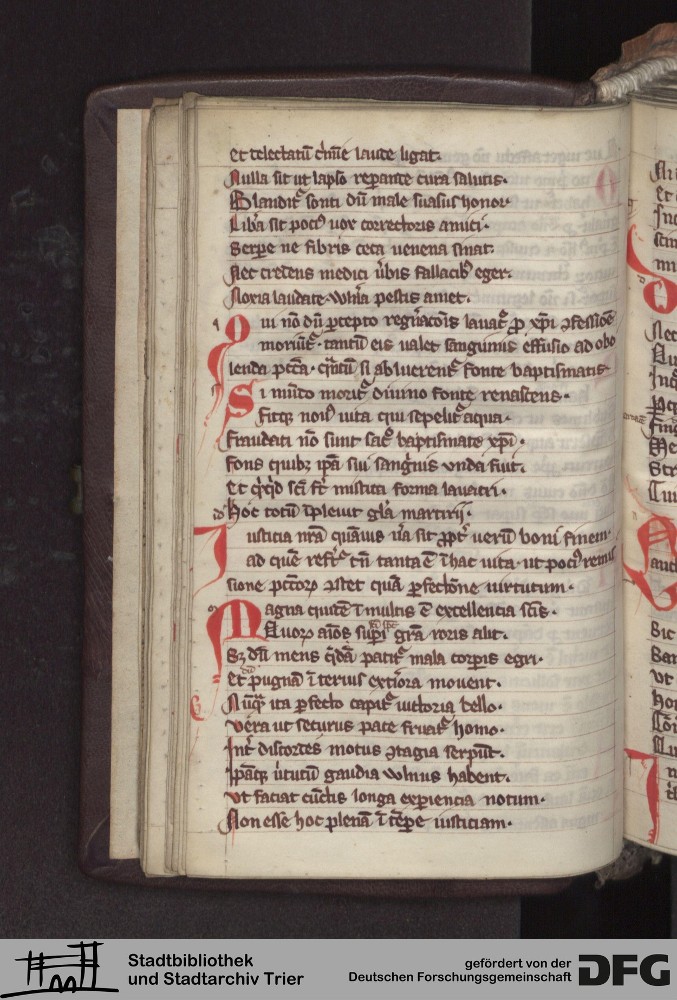 et delectatū cͥmē laude ligat·
Nulla sit ut lapso reparande cura salutis·
Blanditꝰ sonti dū male suasus honor·
Libͣa sit pociꝰ uox correctoris amici·
Serpe ne fibris ceca uenena sinat·
Nec credens medici ūbis fallacibꝰ eger·
Noxia laudate wlnͣa pestis amet·
Qui nō dū ꝑcepto regn̄acoīs lauacͦ ꝓ xp̄i ↄfessiōe
moriūtᷣ· tantū eis ualet sanguinis effusio ad abo
lenda pctā· qͣntū si abluerentᷣ fonte baptismatis·
Si mūdo moritᷣ diuino fonte renascens·
Fitqꝫ nouꝰ uita qui sepelitᷣ aqua·
Fraudati nō sunt sacͦ baptismate xp̄i·
Fons quibꝫ ip̄a sui sangͥnis vnda fuit·
Et qͥcqͥd sc̄i fͭ mistica forma lauacri·
Hoc totū īpleuit gl̄a martirij·
Iusticia nrā quāuis ūa sit ꝓptᷣ uerū boni finem·
ad quē refrͭᷣ tn̄ tanta ē ī hac uita· ut pociꝰ remis
sione pctōꝝ ↄstet quā ꝑfectōne uirtutum·
Magna quidē ī multis ē excellencia sc̄is·
Quoꝝ aīos suꝑi grā roris alit·
Sꝫ dū mens qͥdā patitᷣ mala corꝑis egri·
Et pugnā īterius exͭiora mouent·
Nūqͣ ita ꝑfecto capitᷣ uictoria bello·
Vera ut securus pace fruatᷣ homo·
Int̄ discordes motus ↄtagia serpūt·
Ip̄aqꝫ uͥtutū gaudia wlnus habent·
Vt faciat cūctis longa experiencia notum·
Non esse hoc plenā ī tēpe iusticiam·
Stadtbibliothek
und Stadtarchiv Trier
gefördert von der
Deutschen Forschungsgemeinschaft
DFG